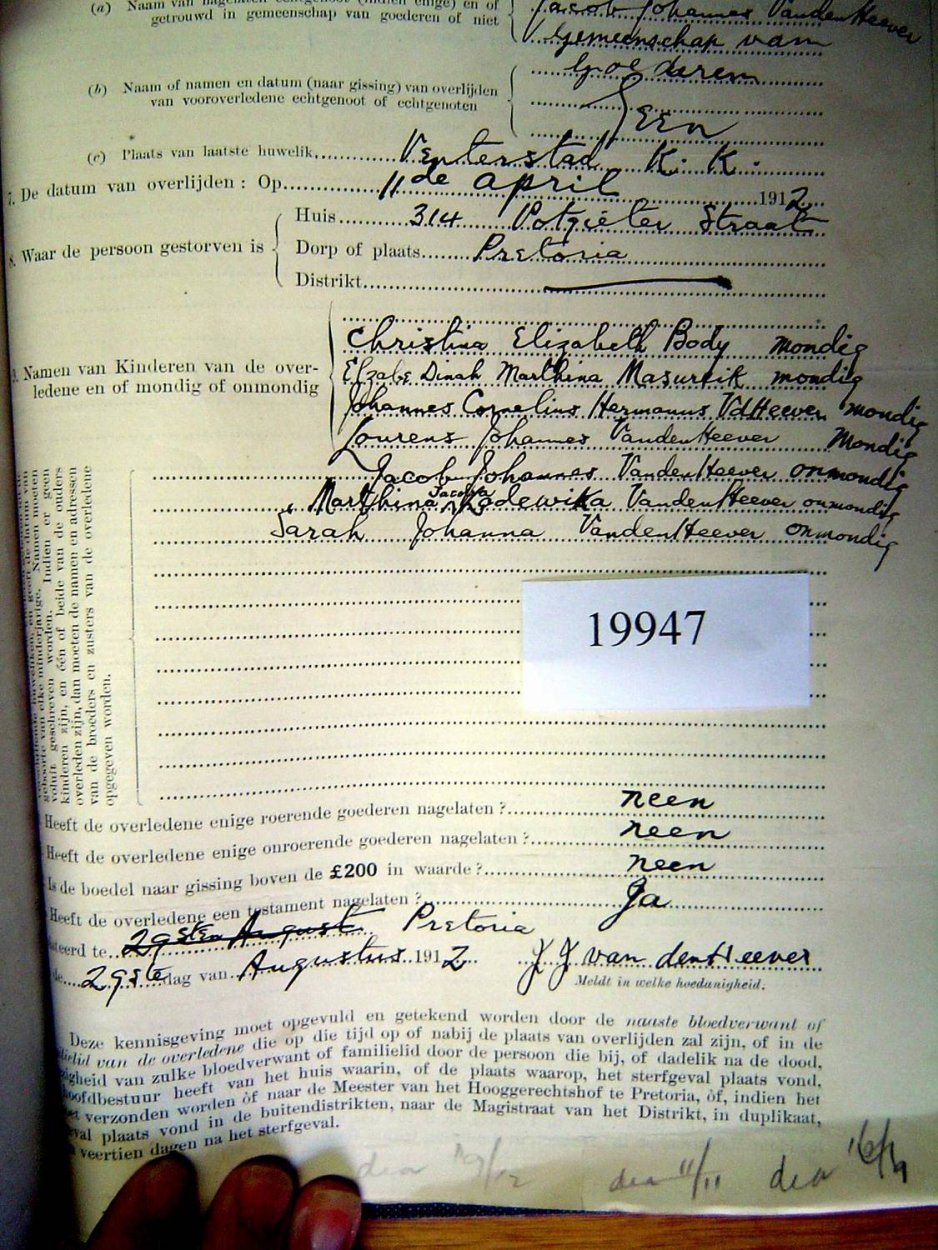 (a) Naam van nagelaten echtgenoot (indien enige) en of
getrouwd in gemeenschap van goederen of niet
Jacob Johannes VandenHeever
Gemeenschap vam
Goederem
(b) Naam of namen en datum (naar gissing) van overlijden
van vooroverledene echtgenoot of echtgenoten
Geen
(c) Plaats van laatste huwelik Venterstad K. K.
7. De datum van overlijden: Op 11de april 1912
8. Waar de persoon gestorven is
Huis 314 Potgieter Straat
Dorp of plaats Pretoria
Distrikt
Namen van Kinderen van de over-
ledene en of mondig of onmondig
Christina Elizabeth Body mondig
Elzabe Dinah Marthina Masurtik mondig
Johannes Cornelius Hermanus VdHeever mondig
Lourens Johannes VandenHeever Mondig
Jacob Johannes VandenHeever onmondig
Marthina Jacoba Lodewika VandenHeever onmondig
Sarah Johanna VandenHeever onmondig
geschreven worden. Indien er geen
kinderen zijn, en één of beide van de ouders
overleden zijn, dan moeten de namen en adressen
van de broeders en zusters van de overledene
opgegeven worden.
19947
Heeft de overledene enige roerende goederen nagelaten? neen
Heeft de overledene enige onroerende goederen nagelaten? neen
Is de boedel naar gissing boven de £200 in waarde? neen
Heeft de overledene een testament nagelaten? Ja
teerd te 29sten August Pretoria
29ste dag van Augustus 1912 J J van denHeever
Meldt in welke hoedanigheid.
Deze kennisgeving moet opgevuld en getekend worden door de naaste bloedverwant of
lid van de overledene die op die tijd op of nabij de plaats van overlijden zal zijn, of in de
igheid van zulke bloedverwant of familielid door de persoon die bij, of dadelik na de dood,
oofdbestuur heeft van het huis waarin, of de plaats waarop, het sterfgeval plaats vond,
et verzonden worden òf naar de Meester van het Hooggerechtshof te Pretoria, òf, indien het
val plaats vond in de buitendistrikten, naar de Magistraat van het Distrikt, in duplikaat,
veertien dagen na het sterfgeval.